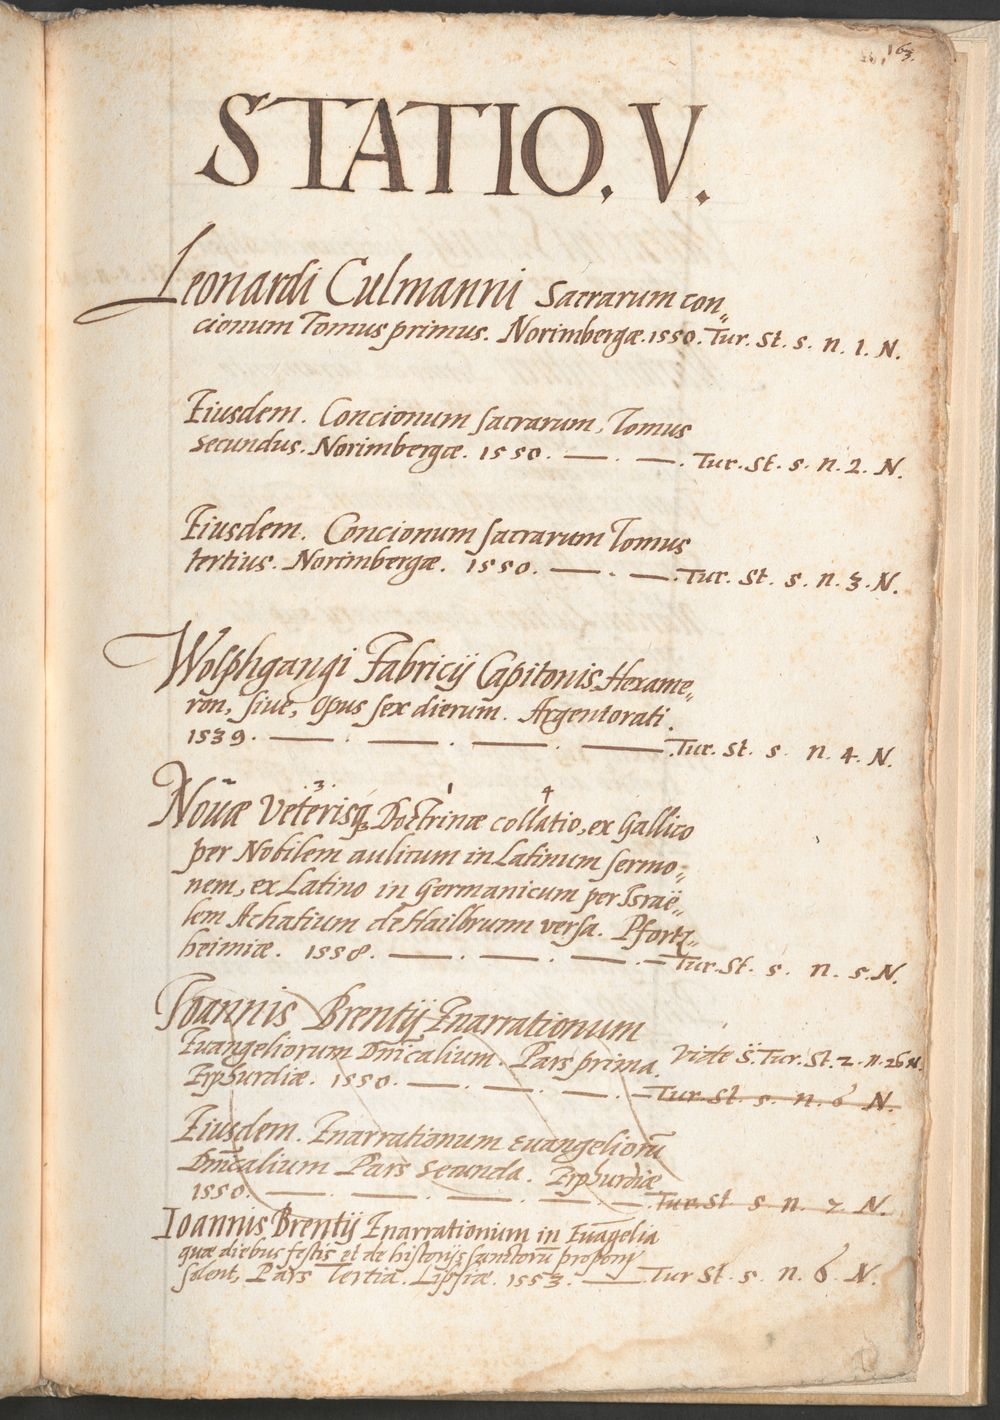 163.
STATIO. V.
Leonardi Culmanni Sacrarum con„
cionum Tomus primus. Norimbergæ. 1550. Tur. St. 5. n. 1. N.
Eiusdem. Concionum sacrarum, Tomus
secundus. Norimbergæ. 1550. — . — . Tur. St. 5. n. 2. N.
Eiusdem. Concionum sacrarum Tomus
tertius. Norimbergæ. 1550. — . — . Tur. St. 5. n. 3. N.
Wolphgangi Fabricij Capitonis Hexame„
ron, siue, Opus sex dierum. Argentorati.
1539. — . — . — . — . Tur. St. 5. n. 4. N.
2 3 1 4
Nouæ Veterisq; Doctrinæ collatio, ex Gallico
per Nobilem aulicum in Latinum sermo„
nem, ex Latino in Germanicum per Israë„
lem Achatium de Hailbrunn versa. Pfortz„
heimiæ. 1558. — . — . — . — Tur. St. 5. n. 5. N.
Ioannis Brentij Enarrationum
Euangeliorum Dm̄icalium. Pars prima. Vide S. Tur. St. 2. n. 26 N.
Erphurdiæ. 1550. — . — . — . — Tur. St. 5. n. 6 N.
Eiusdem. Enarrationum Euangeliorū
Dm̄icalium Pars Secunda. Erphurdiæ
1550. — . — . — . — . — Tur. St. 5. n. 7. N.
Ioannis Brentij Enarrationum in Euāgelia
quæ diebus festis et de historijs sanctorū proponj
solent, Pars Tertia. Lipsiæ. 1553. — Tur St. 5. n. 6. N.